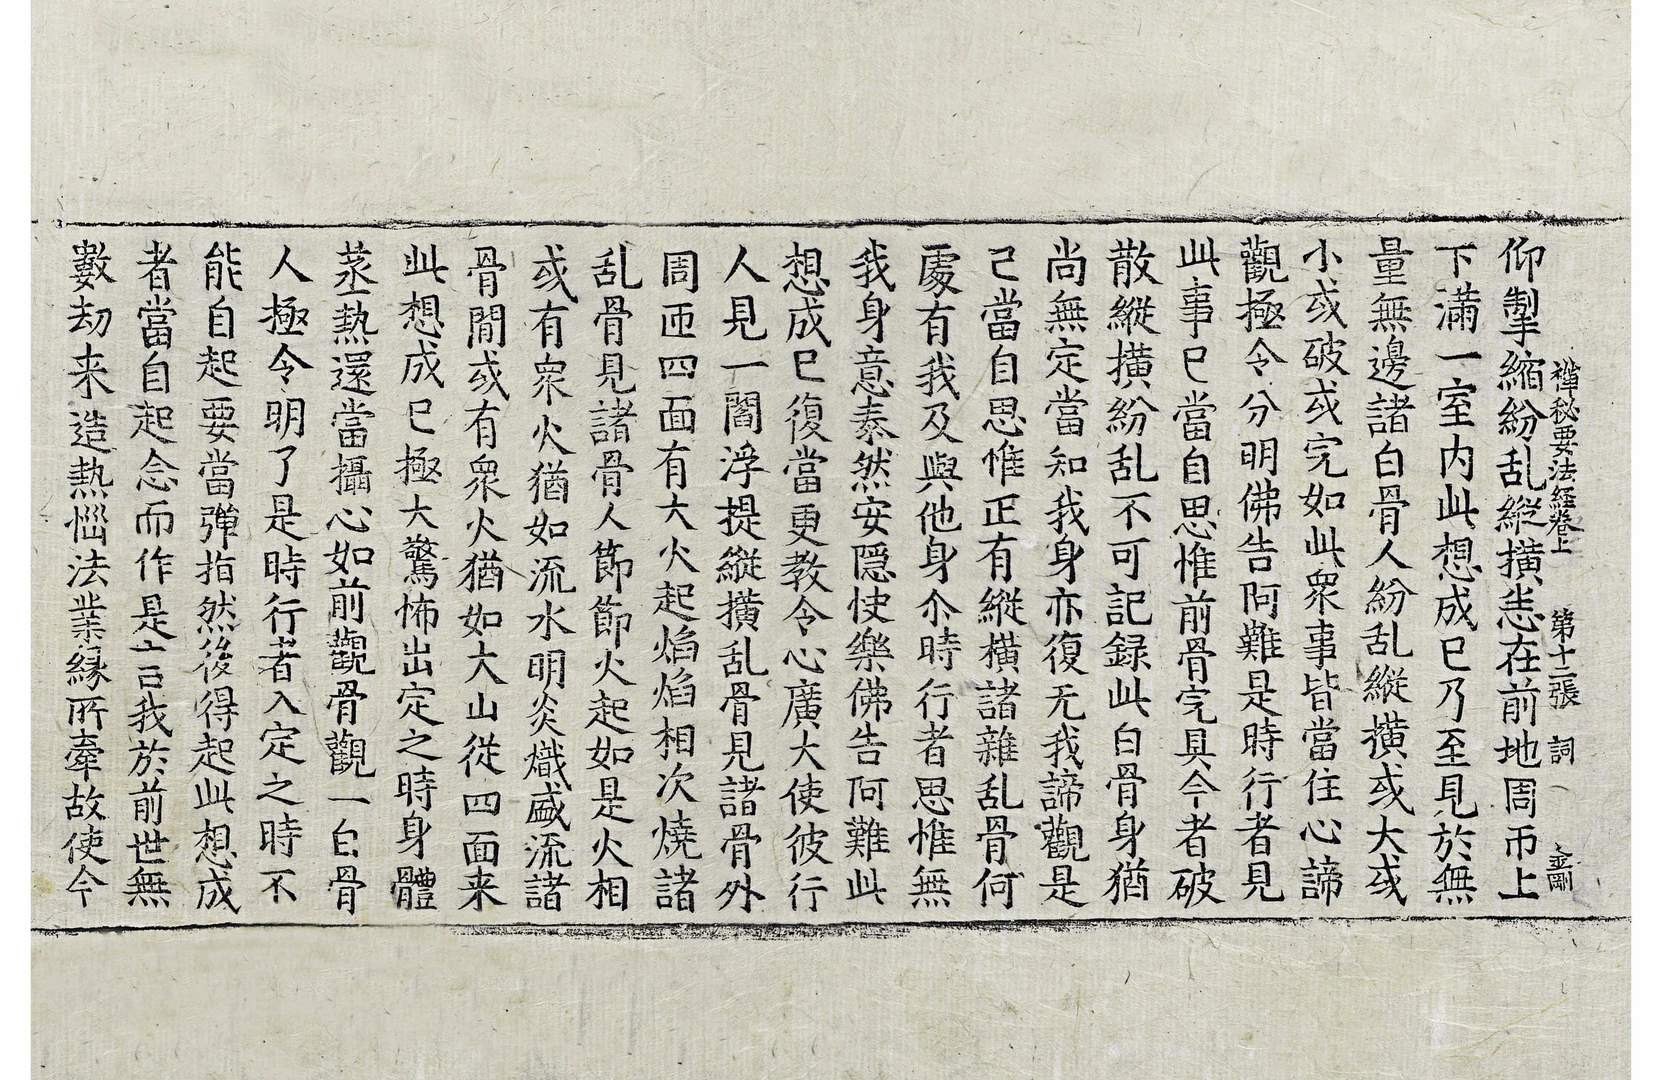 禪秘要法經卷上　第十二張　詞
仰掣縮紛乱縱撗恙在前地周帀上
下滿一室內此想成已乃至見於無
量無邊諸白骨人紛乱縱撗或大或
小或破或完如此衆事皆當住心諦
觀極令分明佛告阿難是時行者見
此事已當自思惟前骨完具今者破
散縱撗紛乱不可記録此白骨身猶
尚無定當知我身亦復无我諦觀是
已當自思惟正有縱橫諸雜乱骨何
處有我及與他身尒時行者思惟無
我身意泰然安隱快樂佛告阿難此
想成已復當更教令心廣大使彼行
人見一閻浮提縱撗乱骨見諸骨外
周匝四面有大火起焰焰相次燒諸
乱骨見諸骨人節節火起如是火相
或有衆火猶如流水明炎熾盛流諸
骨閒或有衆火猶如大山從四面来
此想成已極大驚怖出定之時身體
蒸熱還當攝心如前觀骨觀一白骨
人極令明了是時行者入定之時不
能自起要當彈指然後得起此想成
者當自起念而作是言我於前世無
數劫来造熱惱法業緣所牽故使今